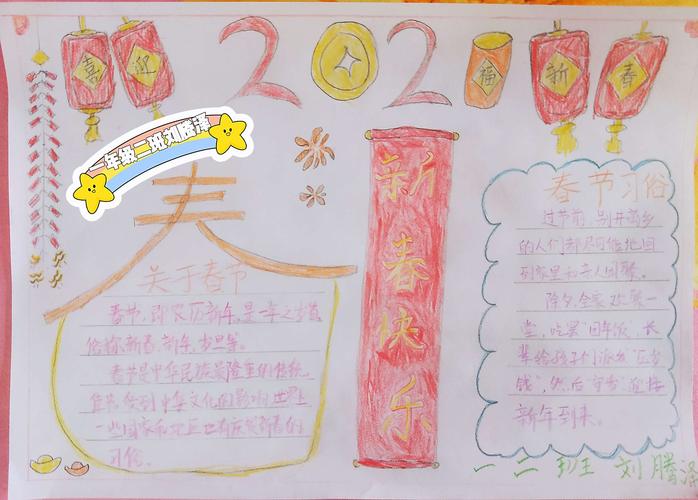 喜 迎 2 0 2 福 新 春
一年级二班刘腾泽
春
关于春节
春节,即农历新年,是一年之岁首,
俗称新春、新年、岁旦等。
春节是中华民族最隆重的传统
佳节。受到中华文化的影响,世界上
一些国家和地区也有庆贺新春的
习俗。
新春快乐
春节习俗
过节前,别井离乡
的人们都尽可能地回
到家里和亲人团聚。
除夕,全家欢聚一
堂,吃罢"团年饭",长
辈给孩子们派发"压岁
钱",然后"守岁"迎接
新年到来。
一 二 班 刘 腾 泽